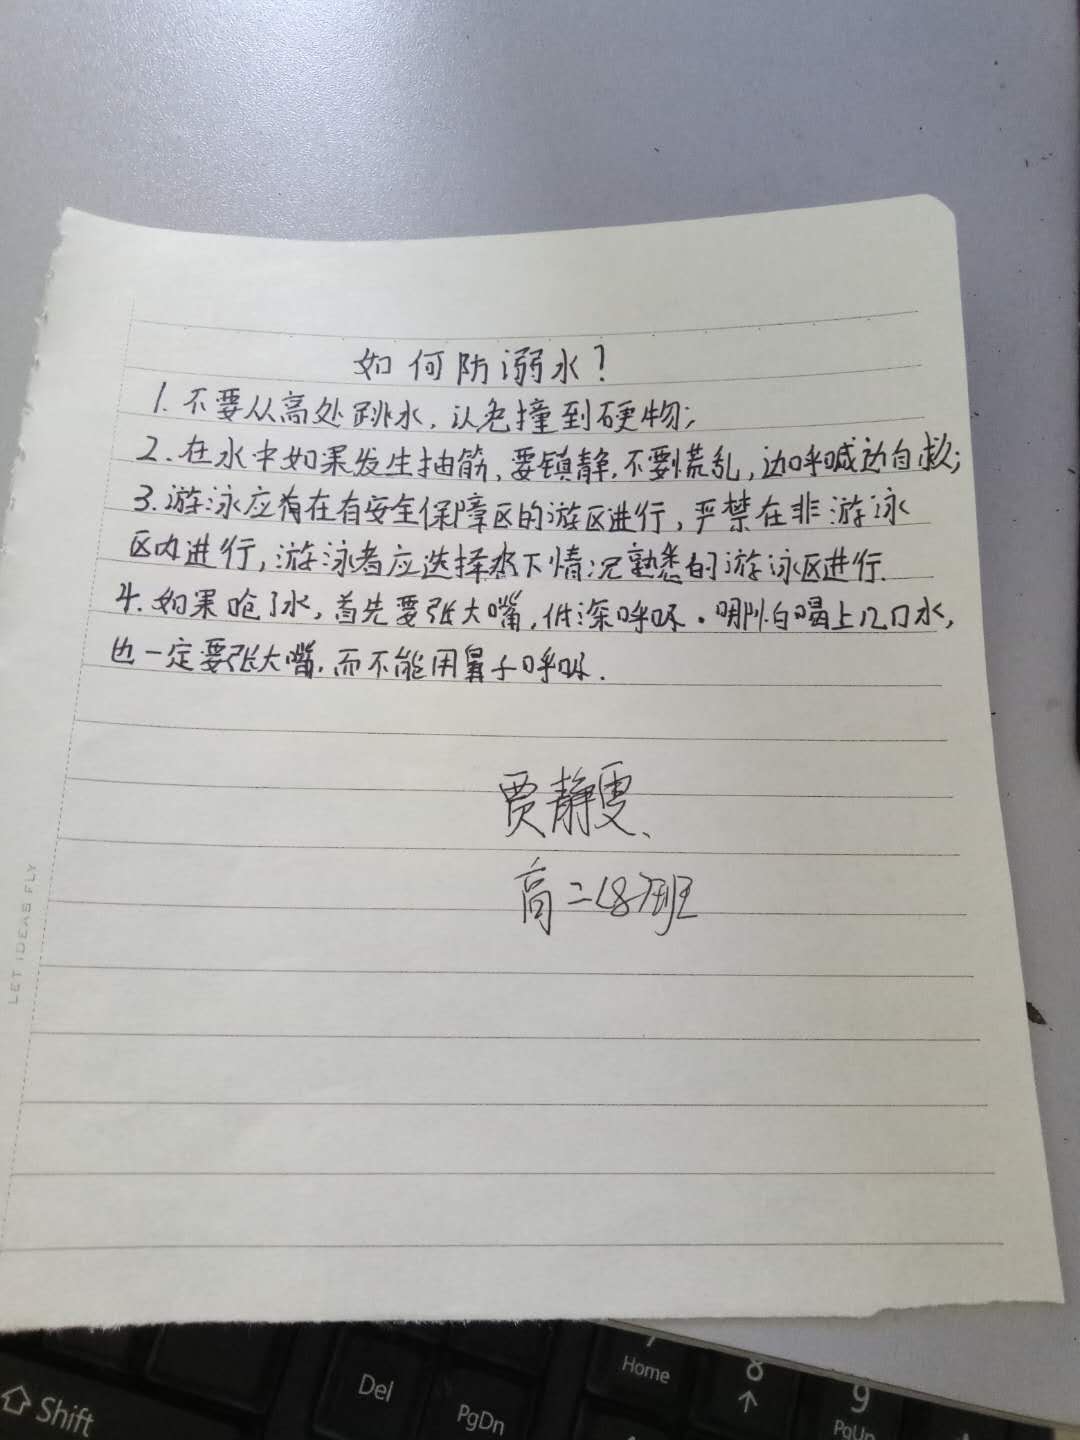 如何防溺水?
1.不要从高处跳水,以免撞到硬物;
2.在水中如果发生抽筋,要镇静,不要慌乱,边呼喊边自救;
3.游泳应有在有安全保障区的游区进行,严禁在非游泳
区内进行,游泳者应选择水下情况熟悉的游泳区进行.
4.如果呛了水,首先要张大嘴,低深呼吸.哪怕喝上几口水,
也一定要张大嘴.而不能用鼻子呼吸.
贾静雯、
高二(8)班
LET IDEAS FLY
Shift
Del
PgDn
7
Home
8
9
PgUp